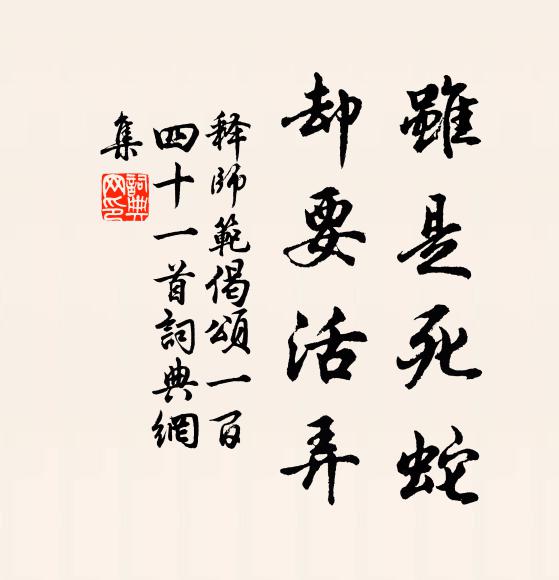 雖是死蛇
却要活弄
释師範偈頌一百
四十一首詞典網
集
詞典
网印